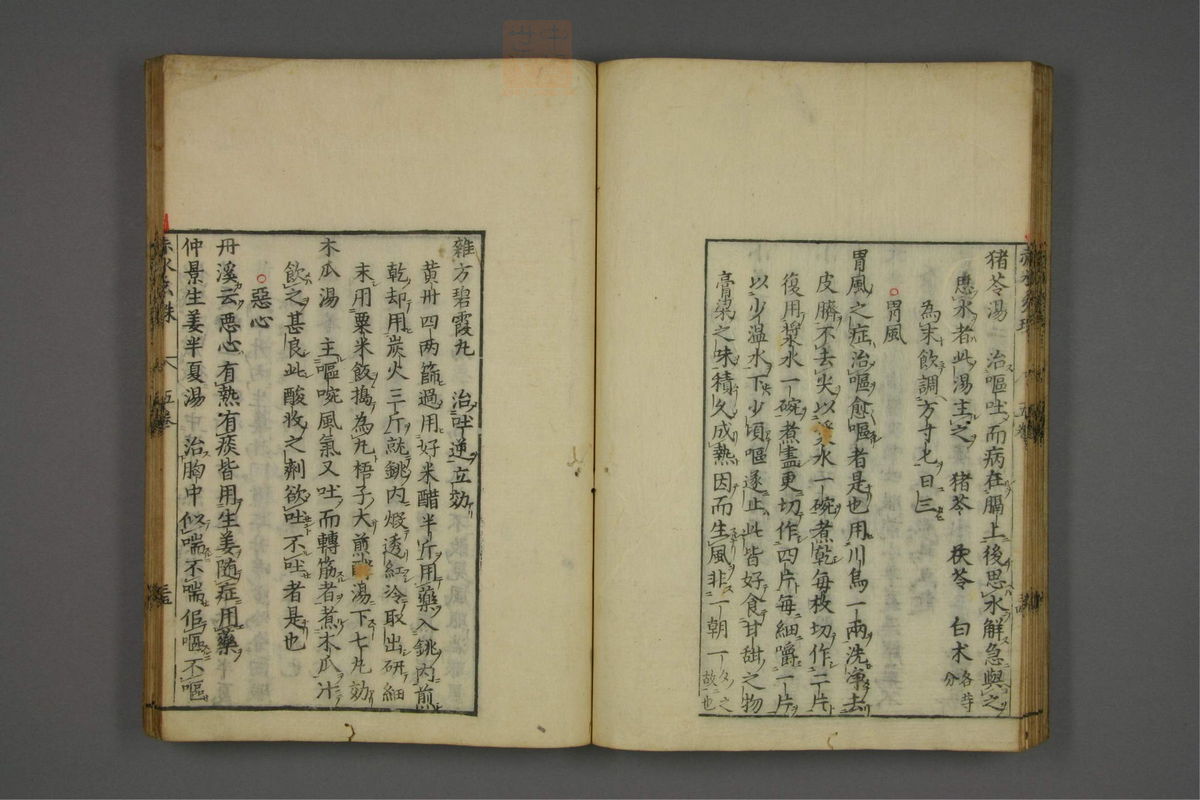 猪苓湯 治嘔吐而病在膈上後思水解急與之
思水者此湯主之 猪苓 茯苓 白朮各等分
為末飲調方寸匕日三
胃風
胃風之症治嘔愈嘔者是也用川烏一兩洗淨去
皮臍不去尖以漿水一碗煮乾每枚切作二片
復用漿水一碗煮盡更切作四片每細嚼一片
以少溫水下少頃嘔遂止此皆好食甘甜之物
膏粱之味積久成熱因而生風非一朝一夕之故也
雜方碧霞丸 治吐逆立効
黄丹四两篩過用好米醋半斤用藥入銚内煎
乾却用炭火三斤就銚内煅透紅冷取出研細
末用粟米飯搗為丸梧子大煎湯下七丸効
木瓜湯 主嘔啘風氣又吐而轉筋者煮木瓜汁
飲之甚良此酸收之剤欲吐不吐者是也
惡心
丹溪云惡心有熱有痰皆用生姜随症用藥
仲景生姜半夏湯 治胸中似喘不喘佀嘔不嘔
赤水玄珠 五卷